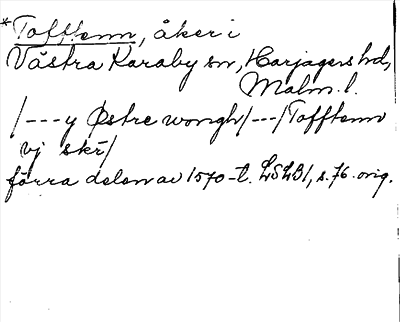 *Tofftenn, åker i
Västra Karaby sn, Harjagers hd,
Malm. l.
/---y Østre wongh/---/Tofftenn
vj skr/
förra delen av 1570-t. LSLB1, s. 76. orig.